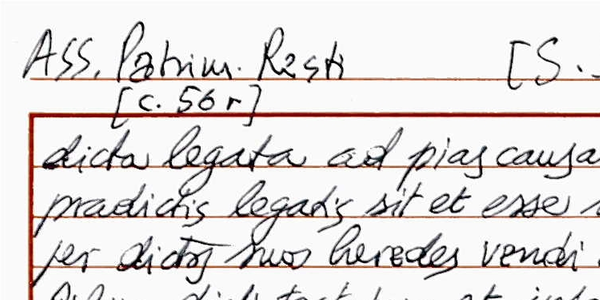 Ass. Patrim. Resti [S.
[c. 56 r]
dicta legata ad pias causa
praedictis legatis sit et esse
per dictos suos heredes vendi